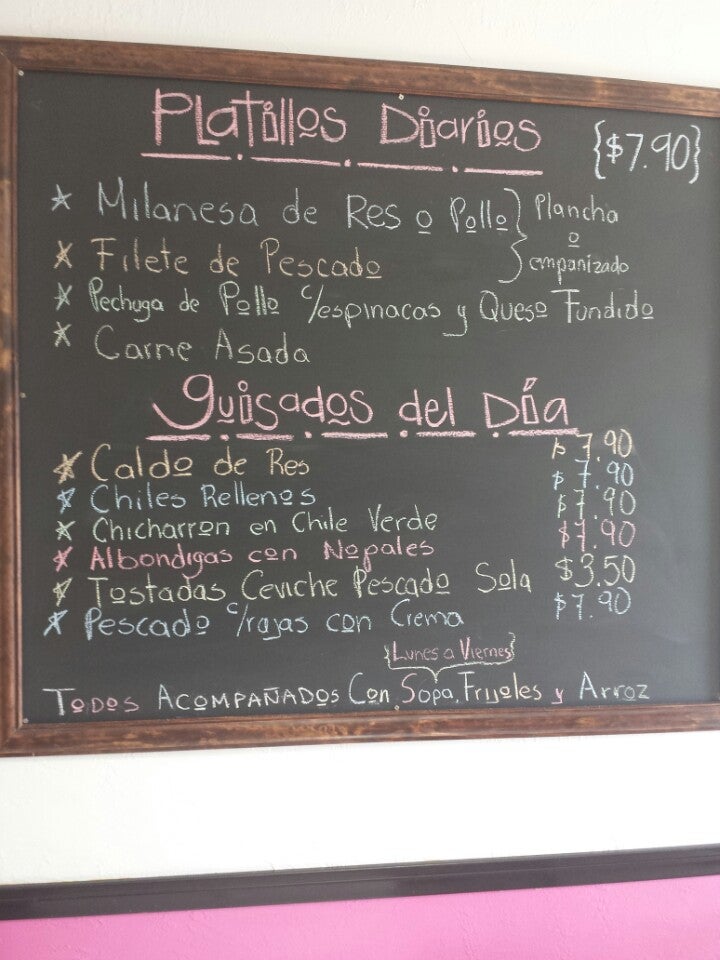 Platillos Diarios {$7.90}
* Milanesa de Res o Pollo } Plancha
o
* Filete de Pescado empanizado
* Pechuga de Pollo c/espinacas y Queso Fundido
* Carne Asada
guisados del Día
* Caldo de Res $7.90
* Chiles Rellenos $7.90
* Chicharron en Chile Verde $7.90
* Albondigas con Nopales $7.90
* Tostadas Ceviche Pescado Sola $3.50
* Pescado c/rajas con Crema $7.90
{Lunes a Viernes}
Todos Acompañados Con Sopa, Frijoles y Arroz